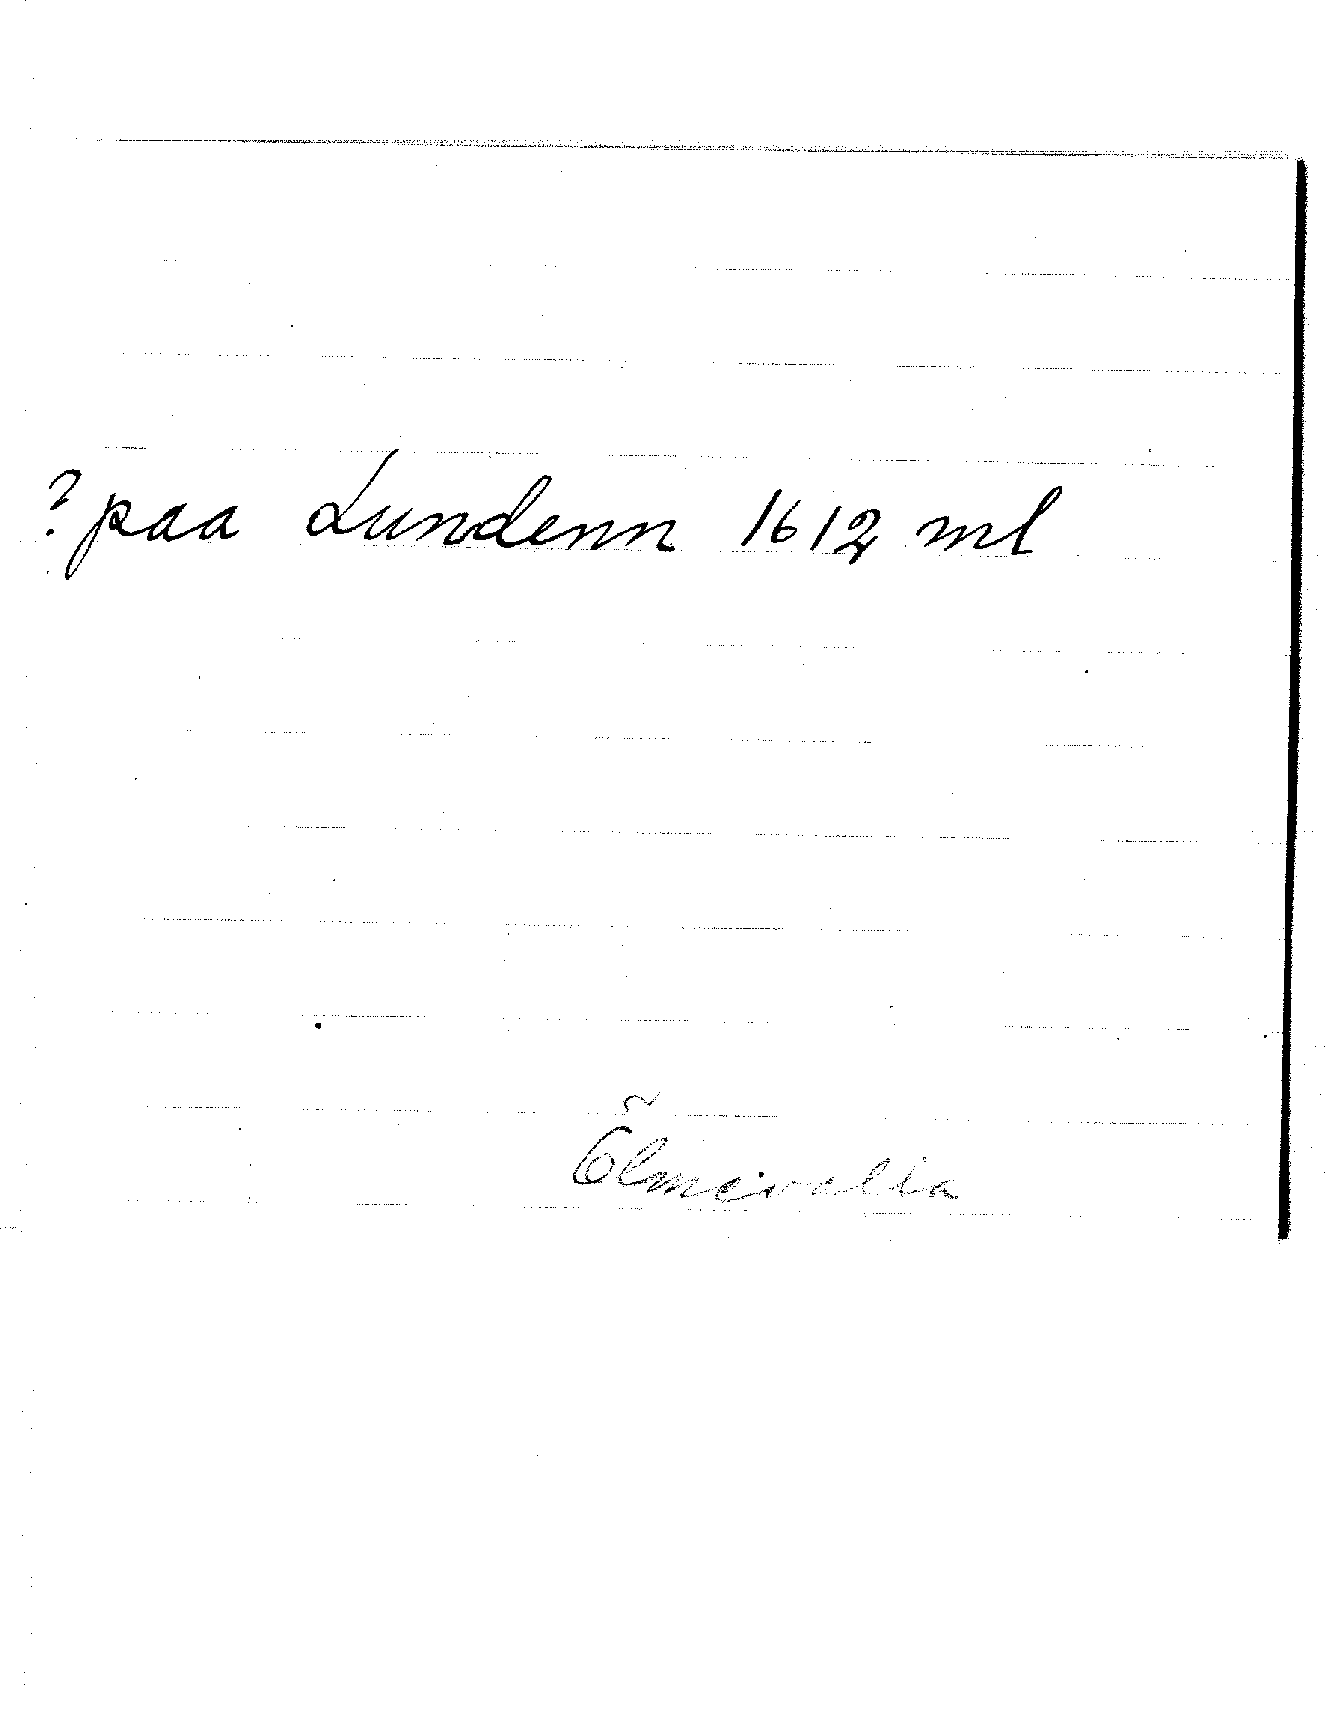 ? paa Lundenn 1612 ml
Ölmevalla